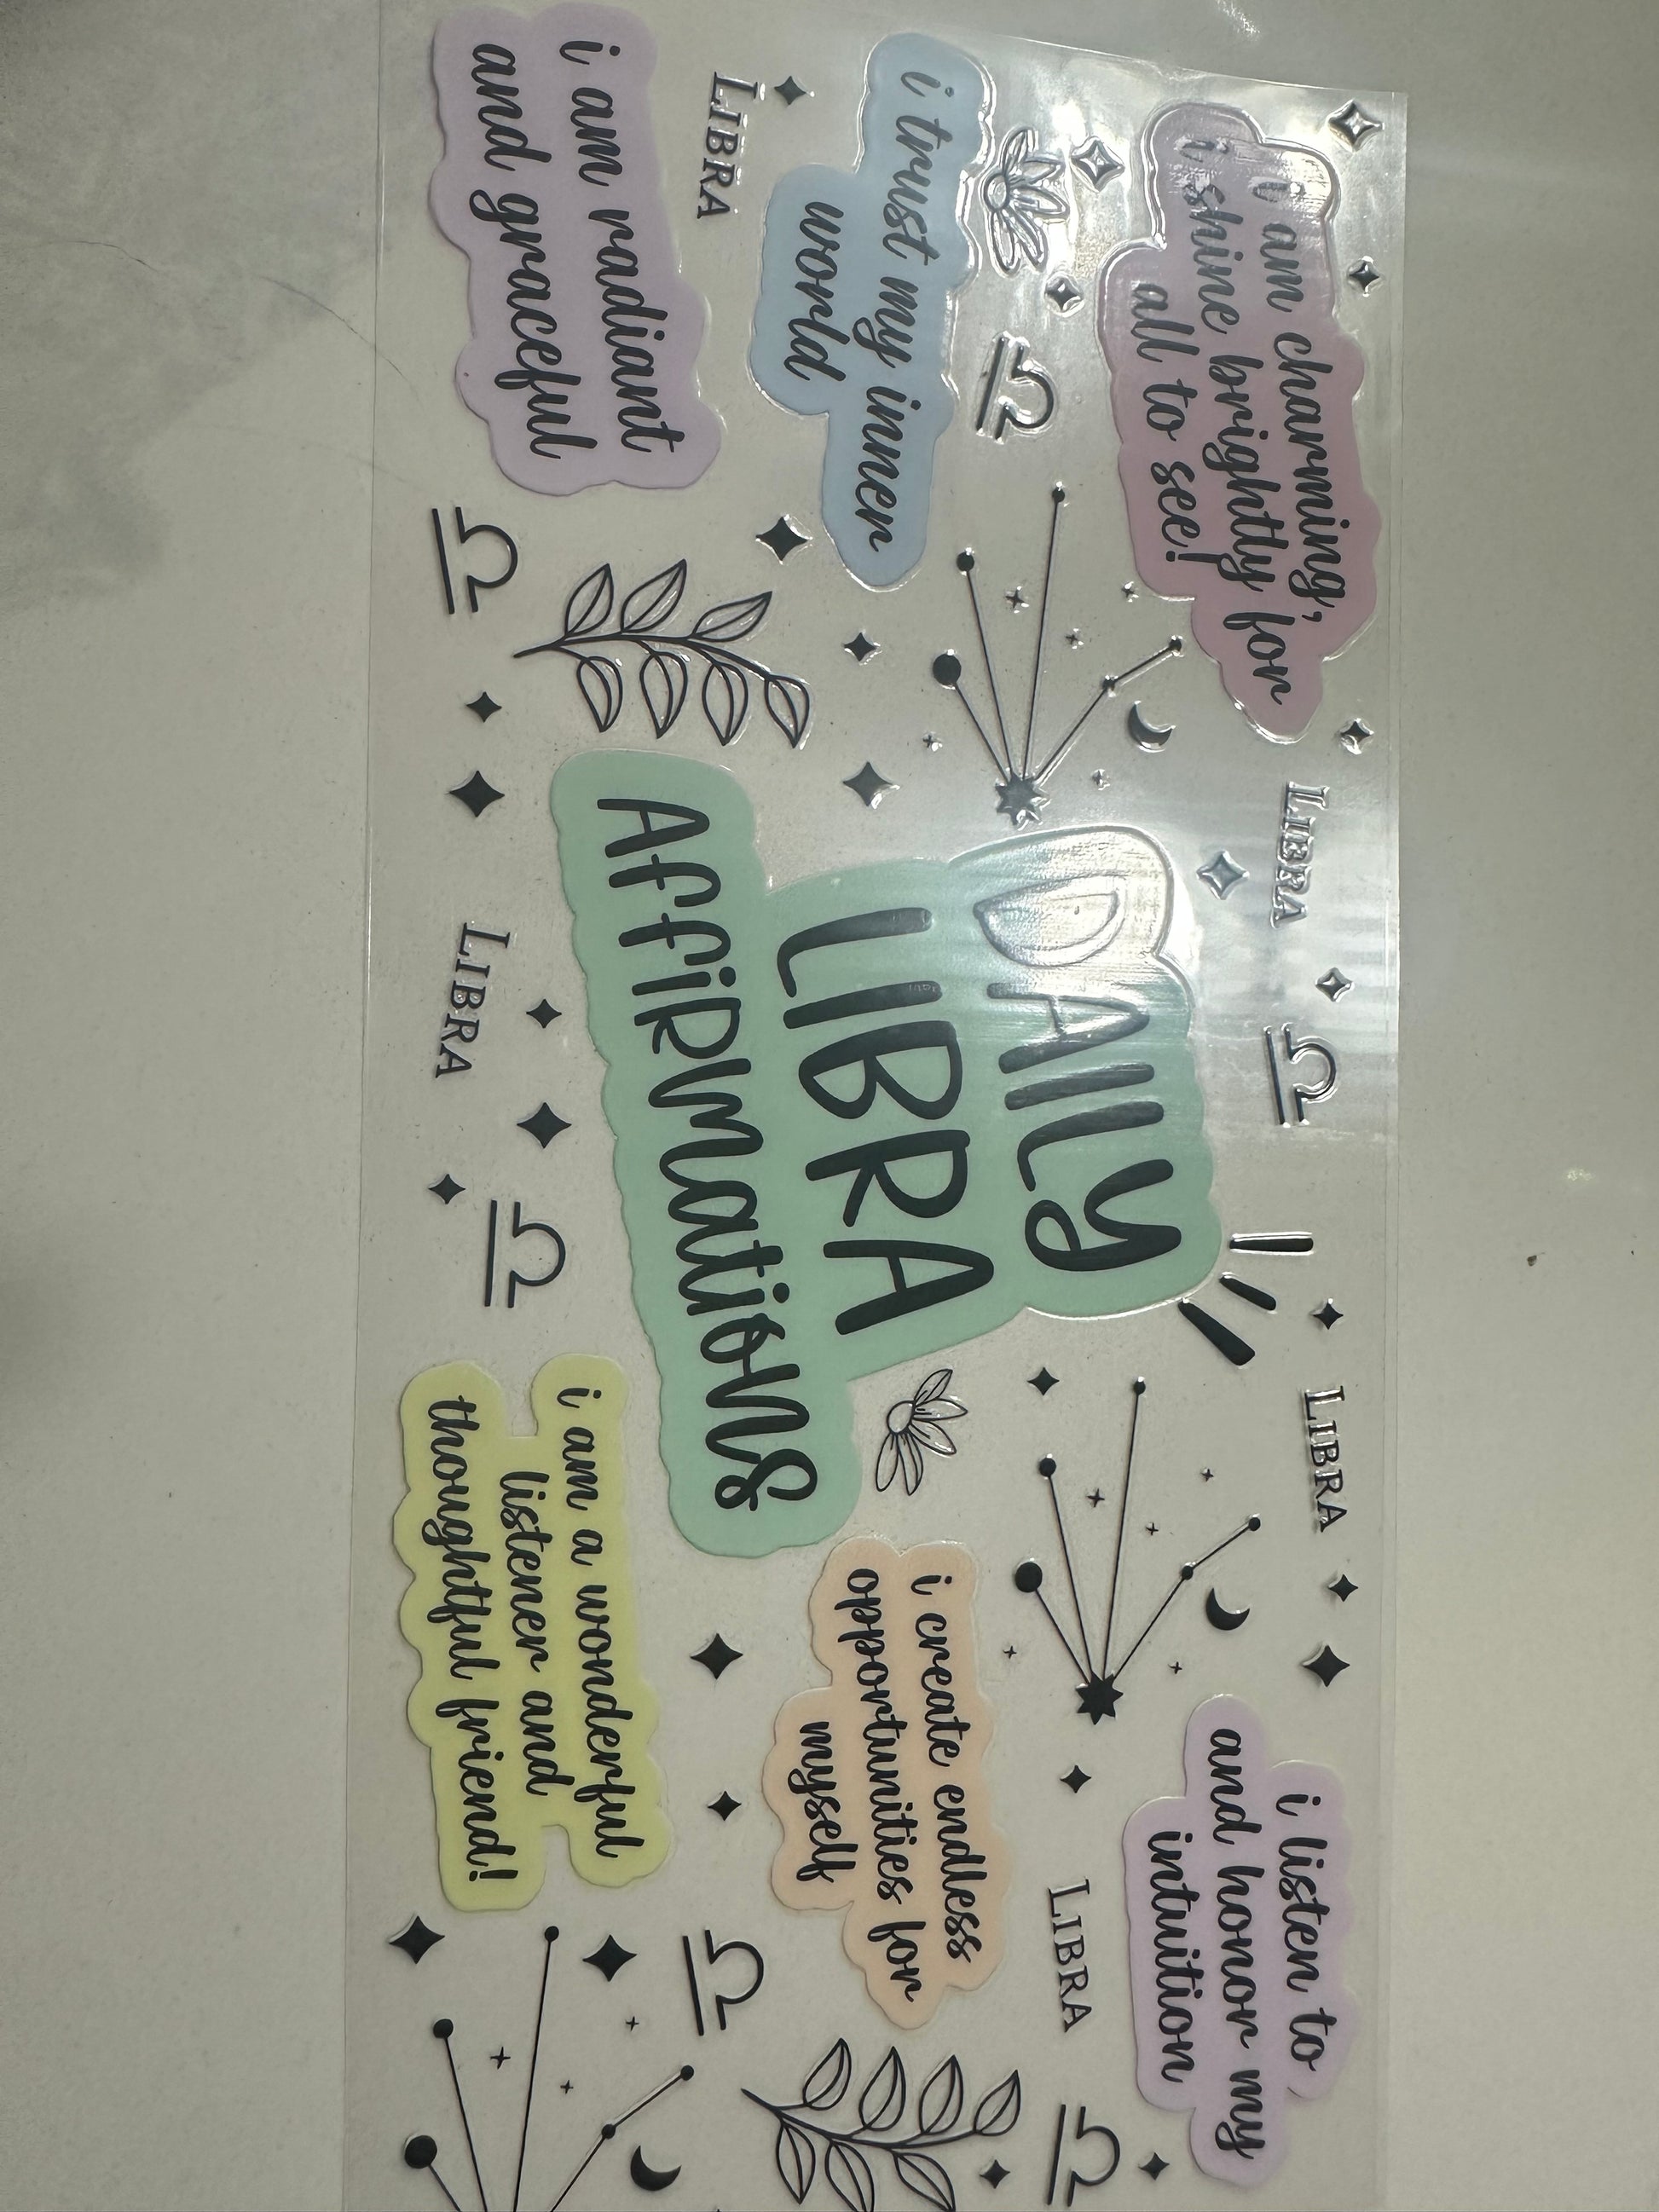 i am charming,
i shine brightly for
all to see!
LIBRA
LIBRA
i listen to
and honor my
intuition
i trust my inner
world
DAILY
LIBRA
AFFIRMATIONS
LIBRA
i create endless
opportunities for
myself
LIBRA
i am radiant
and graceful
LIBRA
i am a wonderful
listener and
thoughtful friend!